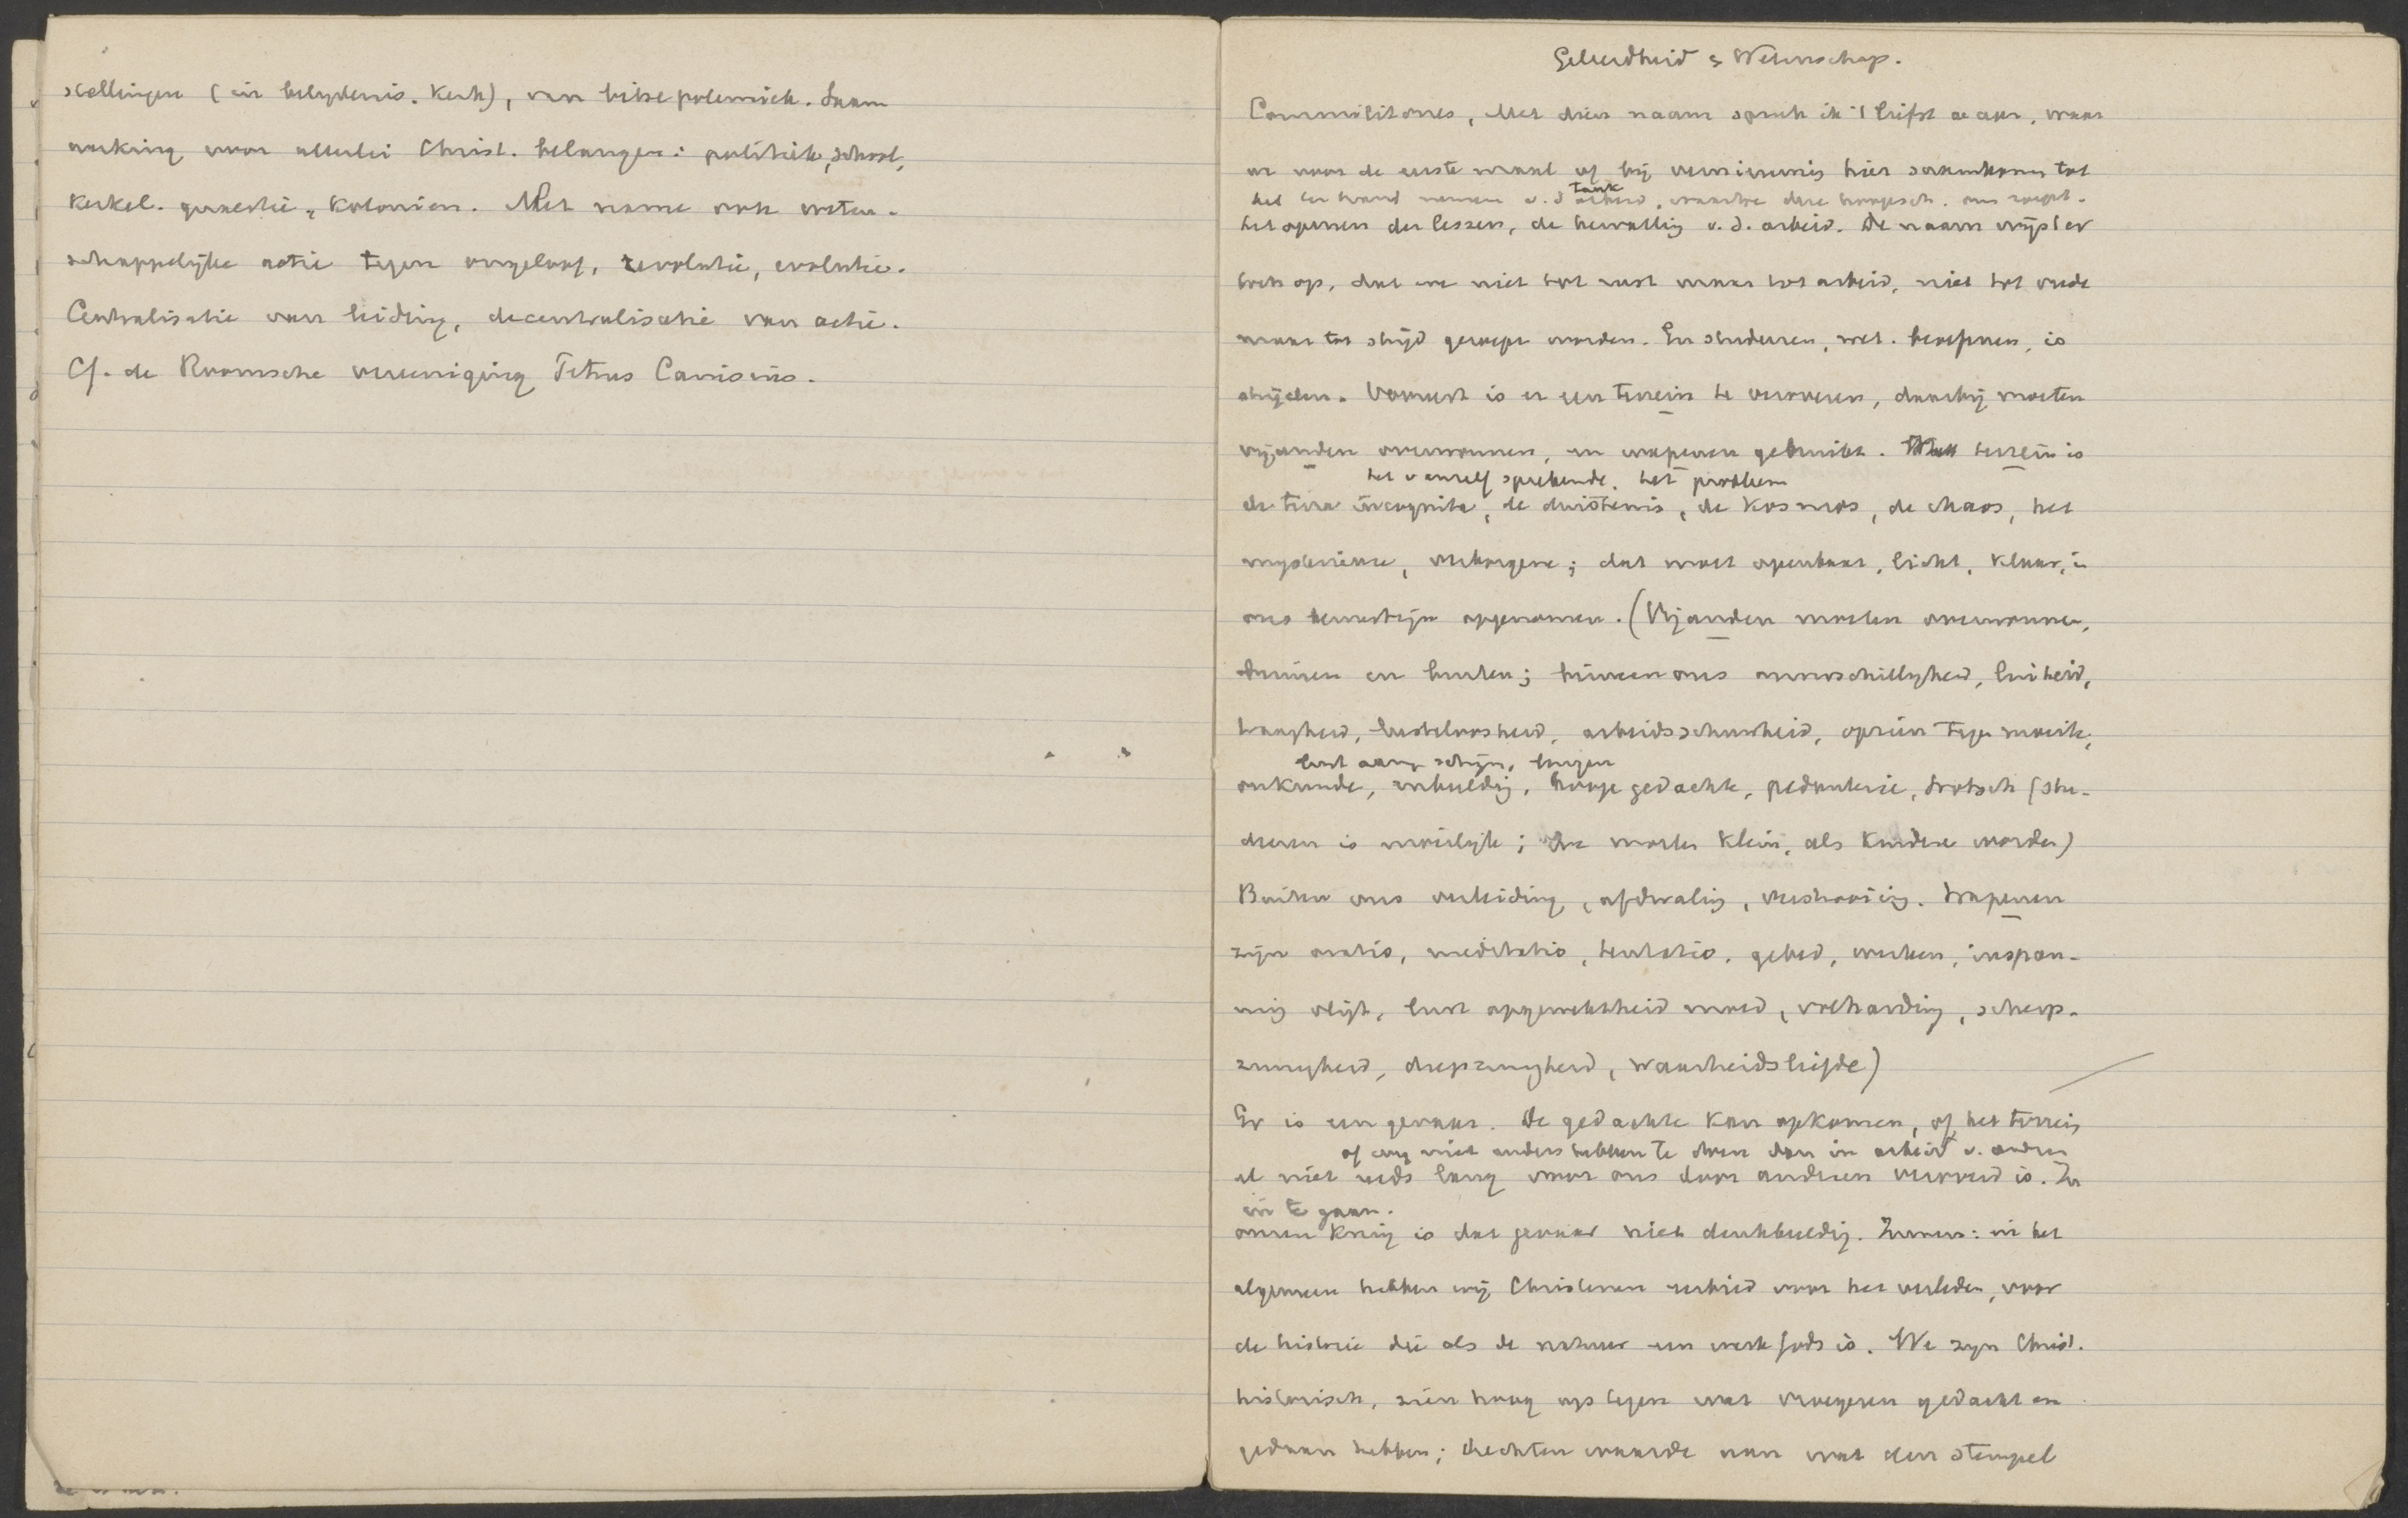 stellingen (in belydenis. Kerk), van bitse polemiek. Saam
werking voor allerlei Christ. belangen: politiek, school,
Kerkel. quaestie, Kolonien. Met name ook weten-
schappelijke actie tegen ongeloof, revolutie, evolutie.
Centralisatie van leiding, decentralisatie van actie.
Cf. de Roomsche vereeniging Petrus Canisius.
Geleerdheid & Wetenschap.
Commilitones, Met dien naam spreek ik 't liefst u aan, waar
we voor de eerste maal of bij vernieuwing hier samenkomen tot
het ter hand nemen v. d. taak arbeid, waartoe deze hoogesch. ons roept.
het openen der lessen, de hervatting v. d. arbeid. De naam wijst er
toch op, dat we niet tot rust maar tot arbeid, niet tot vrede
maar tot strijd geroepen worden. En studeeren, wet. beoefenen, is
strijden. Vooreerst is er een terrein te veroveren, daarbij moeten
vijanden overwonnen, en wapenen gebruikt. terrein is
het vanzelf sprekende. het probleem
de terra incognita, de duisternis, de Kosmos, de chaos, het
mysterieuse, verborgene; dat moet openbaar, licht, klaar, in
ons bewustzijn opgenomen. (Vijanden moeten overwonnen,
binnen en buiten; binnen ons onverschilligheid, luiheid,
traagheid, lusteloosheid, arbeidsschuwheid, opzien tegen moeite,
lust aan schijn, leugen
onkunde, inbeelding, hooge gedachte, pedanterie, trotsch (stu-
deeren is moeilijk; We moeten klein, als kinderen worden)
Buiten ons verleiding, afdwaling, verstrooiing. Wapenen
zijn oratio, meditatio, tentatio, gebed, werken, inspan-
ning vlijt, lust opgewektheid moed, volharding, scherp-
zinnigheid, diepzinnigheid, waarheidsliefde)
Er is een gevaar. De gedachte kan opkomen, of het terrein
of wij niet anders hebben te doen dan in arbeid v. andren
al niet reeds lang voor ons door anderen veroverd is. In
in te gaan.
onzen Kring is dat gevaar niet denkbeeldig. Immers: in het
algemeen hebben wij Christenen eerbied voor het verleden, voor
de historie die als de natuur een werk Gods is. We zijn Christ.
historisch, zien hoog op tegen wat vroegeren gedacht en
gedaan hebben; hechten waarde aan wat den stempel